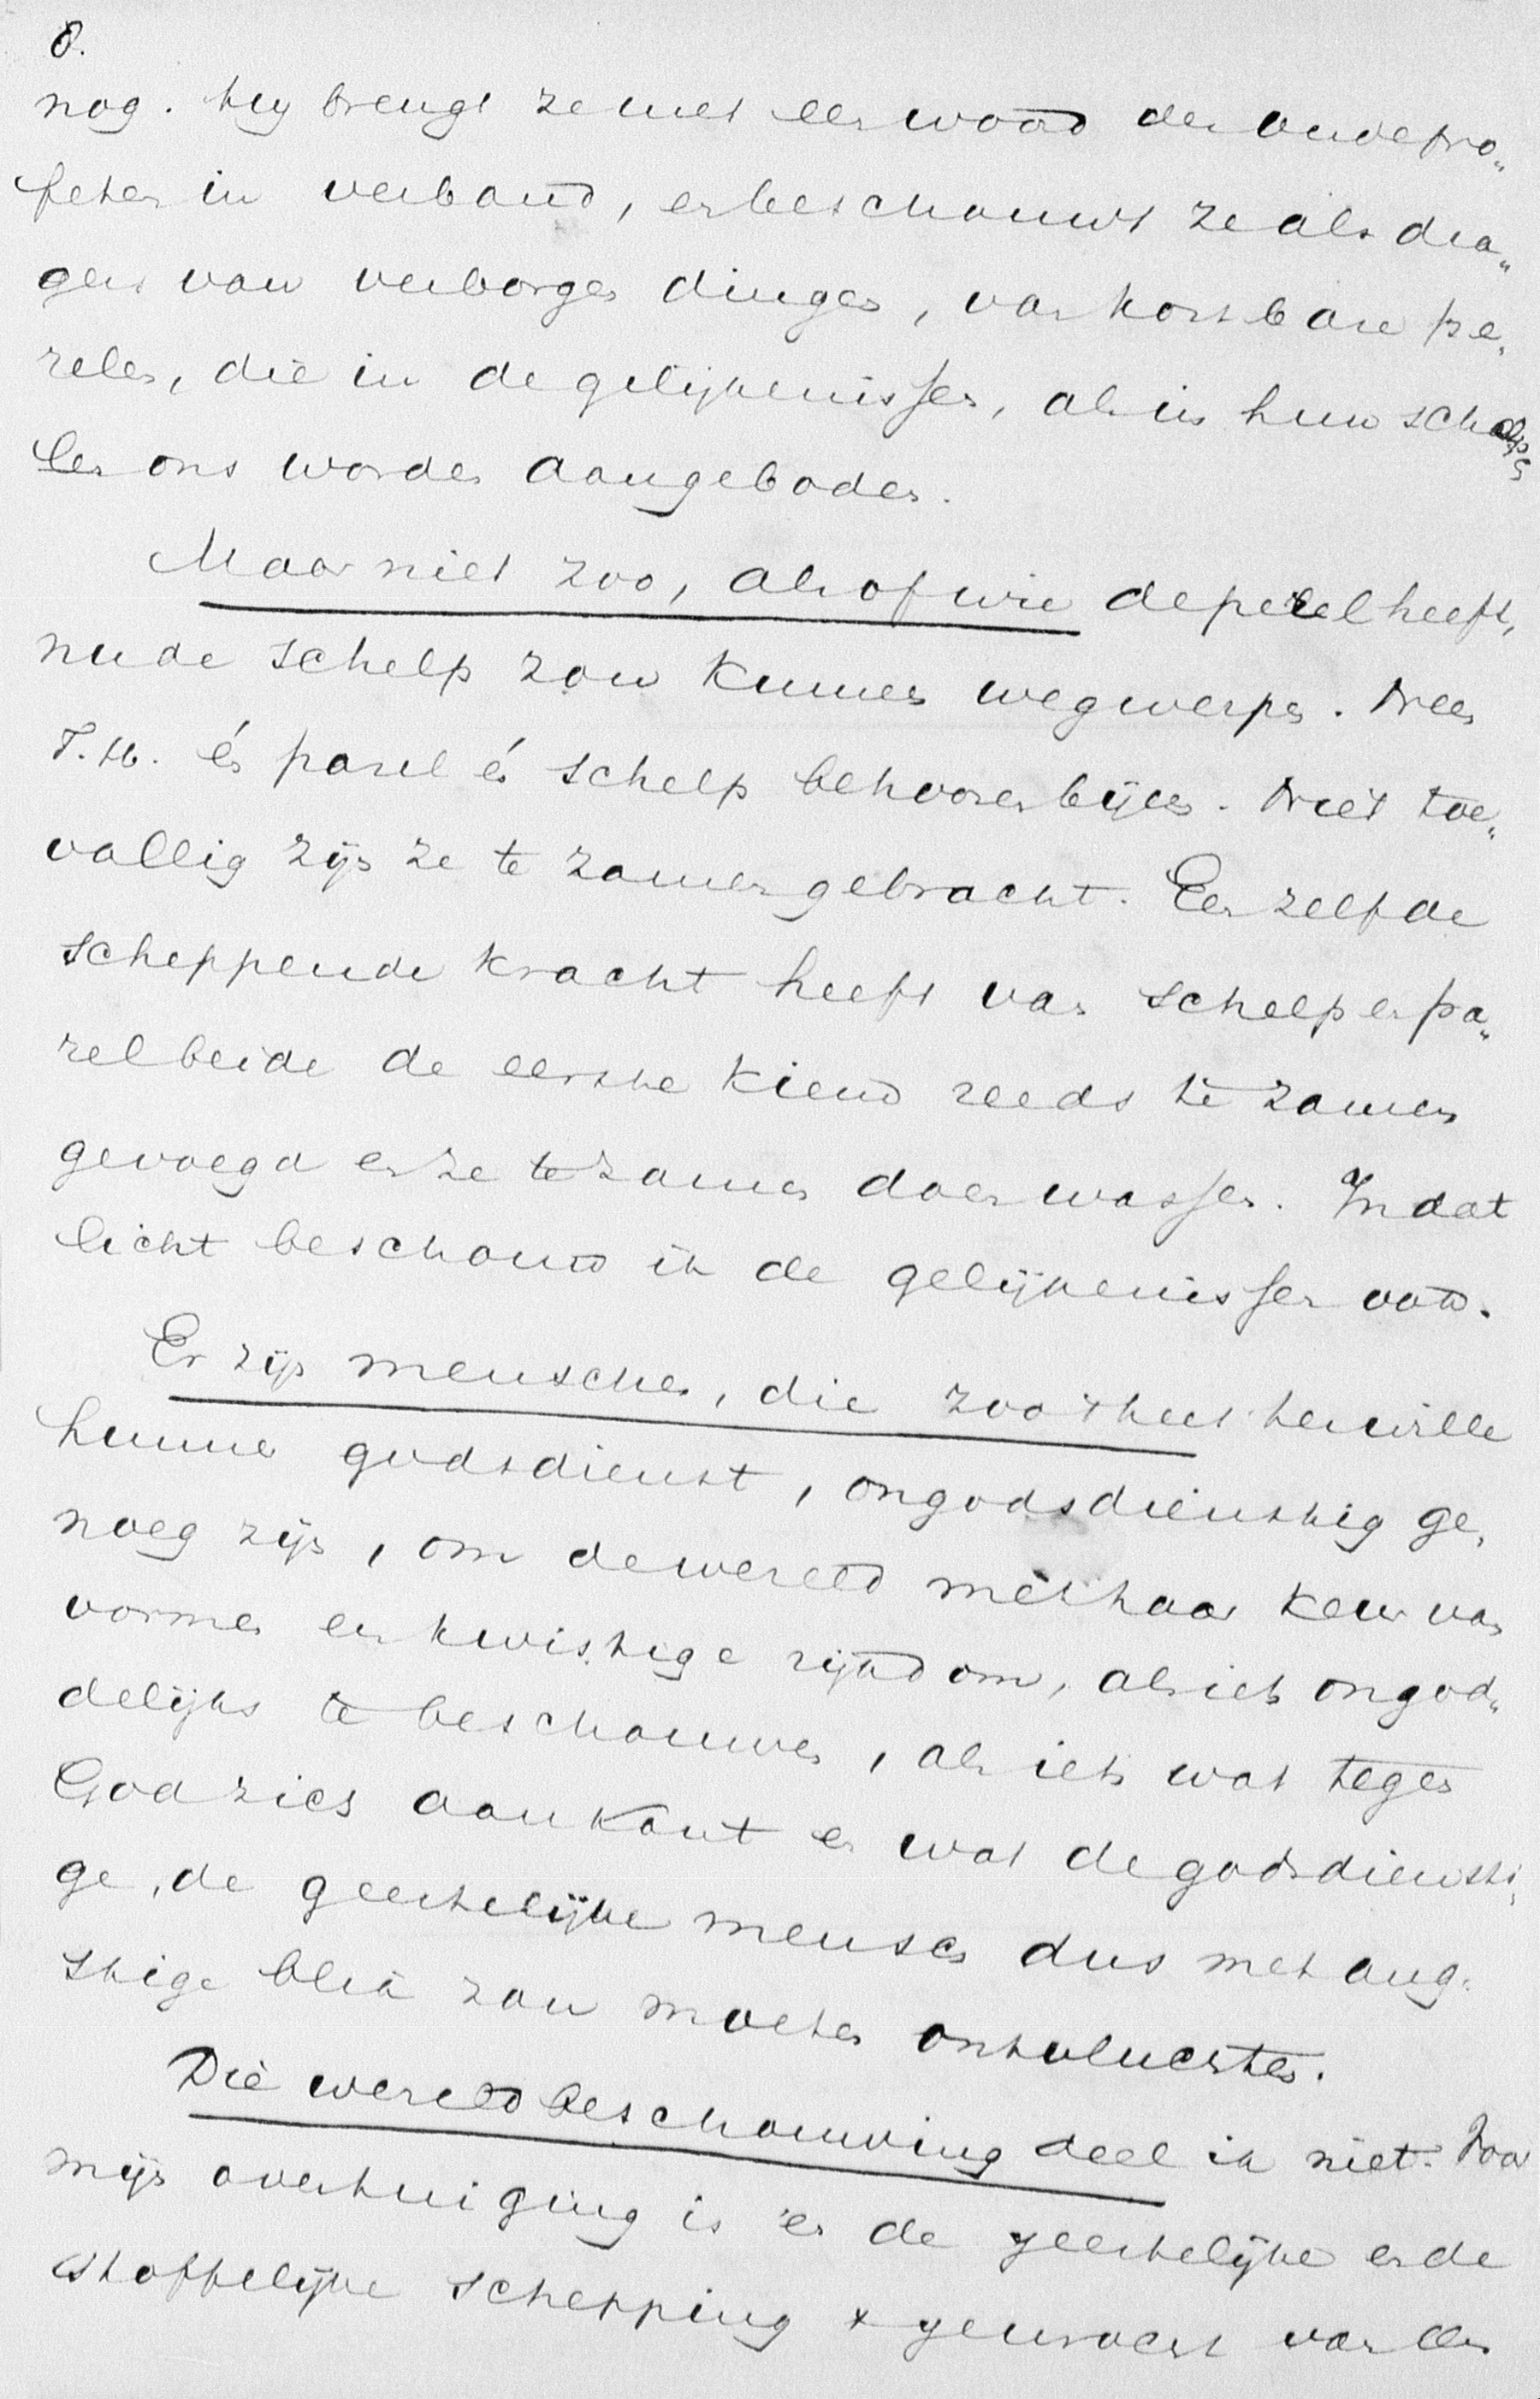 8.
nog. Hij brengt ze met een woord der oude pro„
feten in verband, en beschouwt ze als dra„
gers van verborgen dingen, van kostbare pa„
relen, die in de gelijkenissen, als in hun schelp
len ons worden aangeboden.
Maar niet zoo, alsof wie de perel heeft,
nu de schelp zou kunnen wegwerpen. Neen
T. H. én parel én schelp behooren bijeen. Niet toe„
vallig zijn ze te zamen gebracht. Een zelfde
scheppende kracht heeft van schelp en pa„
rel beide de eerste kiem reeds te zamen
gevoegd en ze te zamen doen wassen. In dat
licht beschouw ik de gelijkenissen ook.
Er zijn menschen, die zoo 't heet ter wille
hunner godsdienst, ongodsdienstig ge„
noeg zijn, om de wereld met haar keur van
vormen en kwistige rijkdom, als iets ongod„
delijks te beschouwen, als iets wat tegen
God zich aankant en wat de godsdiensti„
ge, de geestelijke mensch dus met ang„
stige blik zou moeten ontvluchten.
Die wereldbeschouwing deel ik niet. Voor
mijn overtuiging is en de geestelijke en de
stoffelijke schepping x gewrocht van één